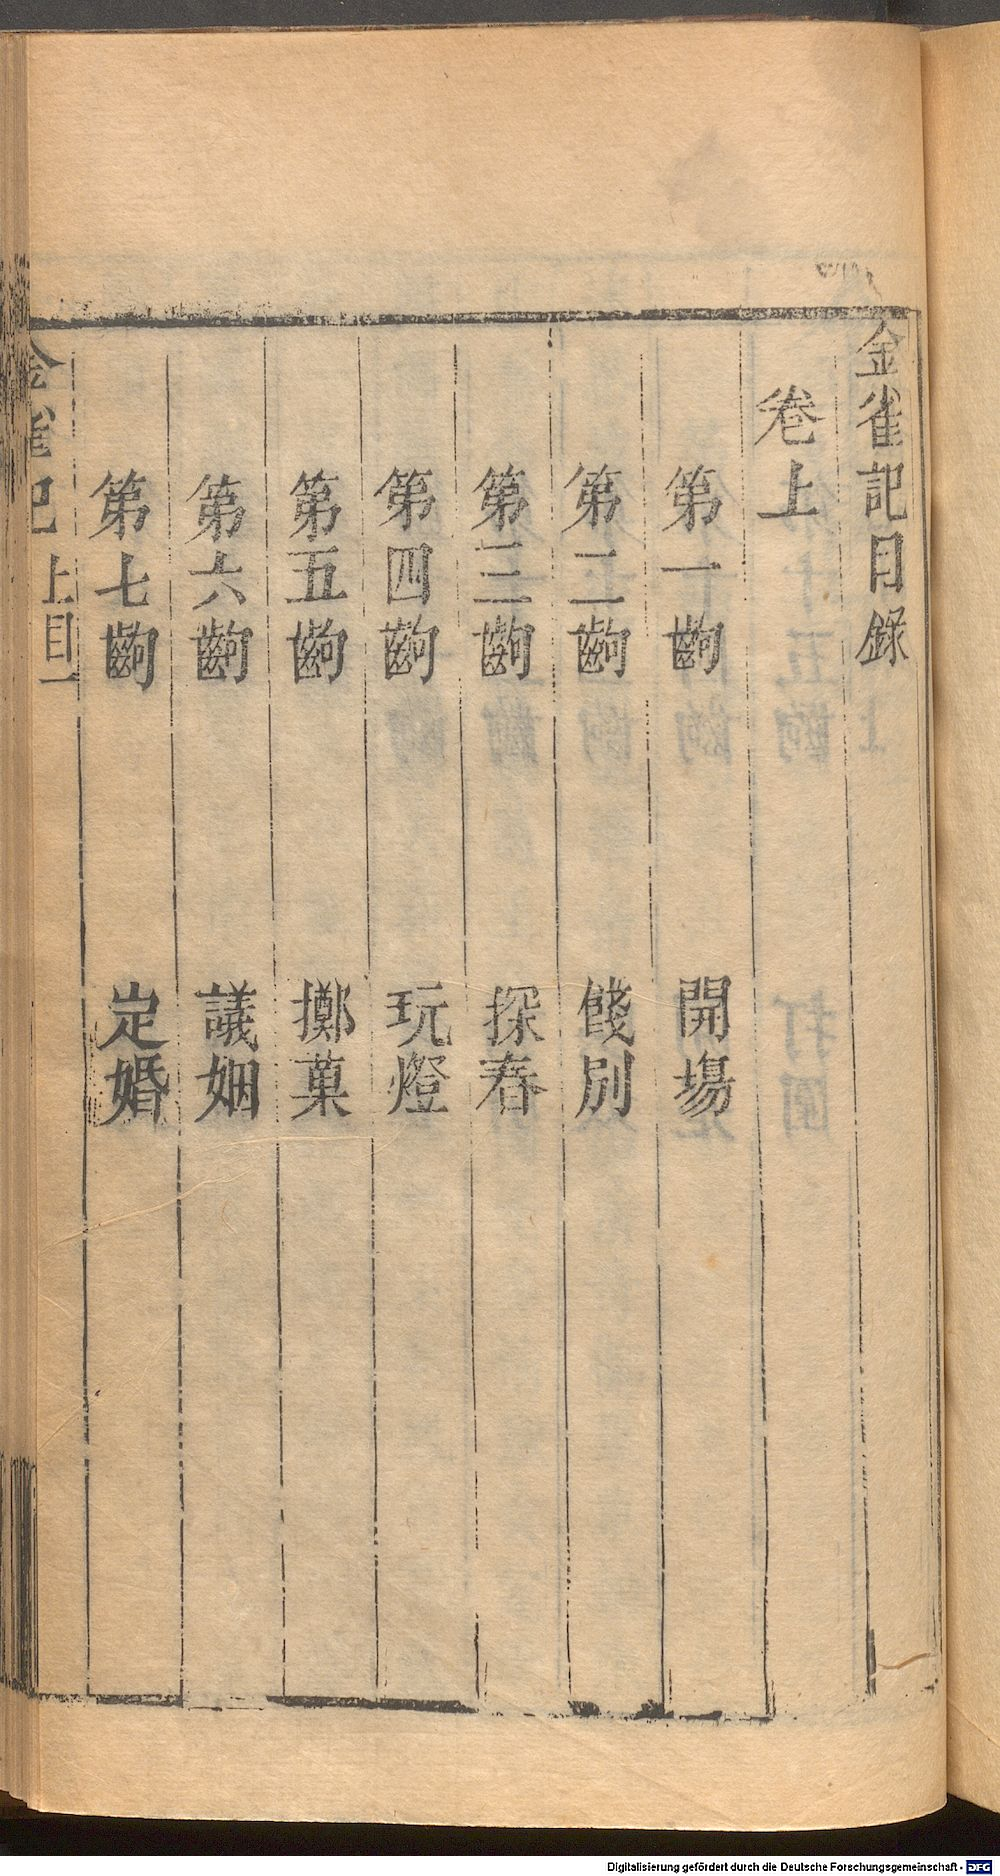 金雀記目錄
卷上
第一齣 開場
第二齣 餞別
第三齣 探春
第四齣 玩燈
第五齣 擲菓
第六齣 議姻
第七齣 定婚
金雀記 上目一
Digitalisierung gefördert durch die Deutsche Forschungsgemeinschaft - DFG